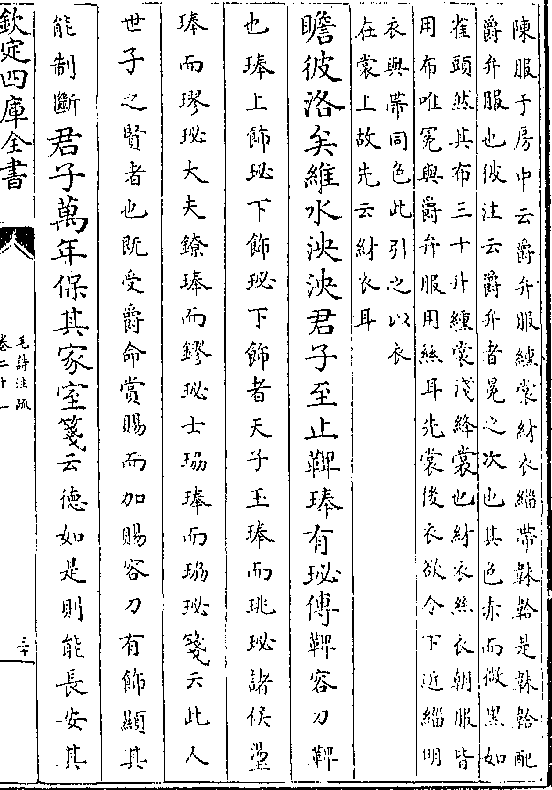 陳服于房中云爵弁服纁裳紂衣緇帶韎韐是韎韐配
爵弁服也彼注云爵弁者冕之次也其色赤而微黑如
雀頭然其布三十升纁裳淺絳裳也紂衣絲衣朝服皆
用布唯冕與爵弁服用絲耳先裳後衣欲令下近緇明
衣與帶同色此引之以衣
在裳上故先云紂衣耳
瞻彼洛矣維水泱泱君子至止鞞琫有珌傳鞞容刀鞞
也琫上飾珌下飾珌下飾者天子玉琫而珧珌諸侯璗
琫而璆珌大夫鐐琫而鏐珌士珕琫而珕珌箋云此人
世子之賢者也既受爵命賞賜而加賜容刀有飾顯其
能制斷君子萬年保其家室箋云德如是則能長安其
欽定四庫全書
毛詩注疏
卷二十一
三十